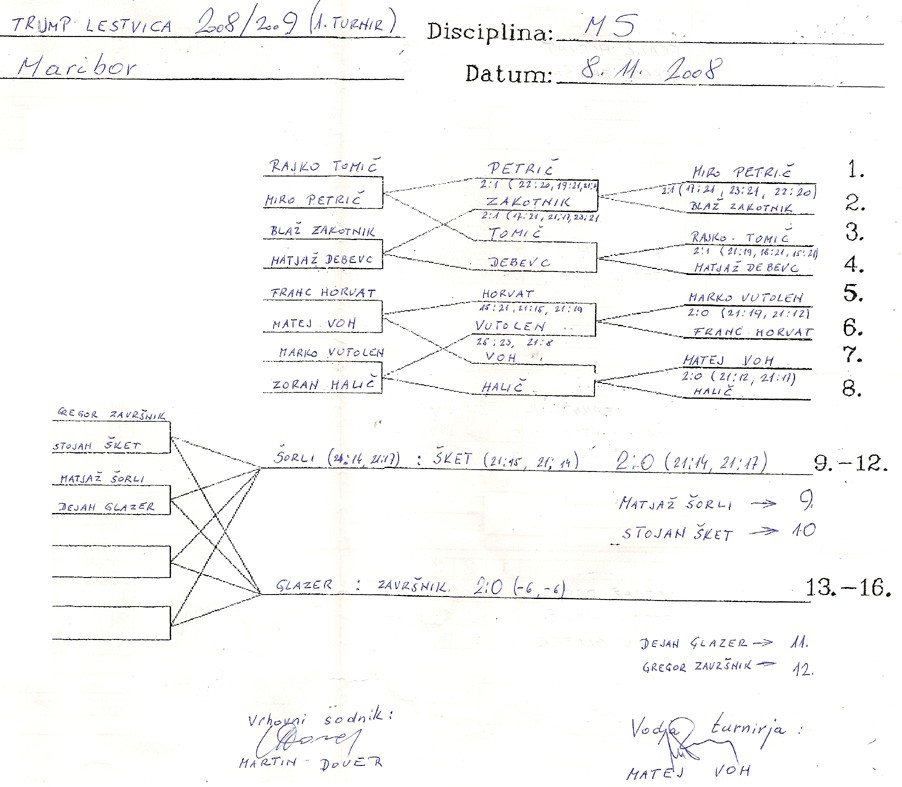 TRUMP LESTVICA 2008/2009 (1. TURNIR)
Disciplina: MS
Maribor
Datum: 8. 11. 2008
RAJKO TOMIČ
MIRO PETRIČ
BLAŽ ZAKOTNIK
MATJAŽ DEBEVC
FRANC HORVAT
MATEJ VOH
MARKO VUTOLEN
ZORAN HALIČ
PETRIČ
2:1 (22:20, 19:21, 21:
ZAKOTNIK
2:1 (17:21, 21:17, 23:21
TOMIČ
DEBEVC
HORVAT
15:21, 21:15, 21:19
VUTOLEN
25:23, 21:8
VOH
HALIČ
MIRO PETRIČ 1.
2:1 (17:21, 23:21, 22:20)
BLAŽ ZAKOTNIK 2.
RAJKO TOMIČ 3.
2:1 (21:19, 16:21, 15:21)
MATJAŽ DEBEVC 4.
MARKO VUTOLEN 5.
2:0 (21:19, 21:12)
FRANC HORVAT 6.
MATEJ VOH 7.
2:0 (21:12, 21:17)
HALIČ 8.
GREGOR ZAVRŠNIK
STOJAN ŠKET
MATJAŽ ŠORLI
DEJAN GLAZER
ŠORLI (21:14, 21:17) : ŠKET (21:15, 21:14) 2:0 (21:14, 21:17) 9.-12.
MATJAŽ ŠORLI → 9.
STOJAN ŠKET → 10
GLAZER : ZAVRŠNIK 2:0 (-6, -6) 13.-16.
DEJAN GLAZER → 11.
GREGOR ZAVRŠNIK → 12.
Vrhovni sodnik:
MARTIN DOVER
Vodja turnirja:
MATEJ VOH